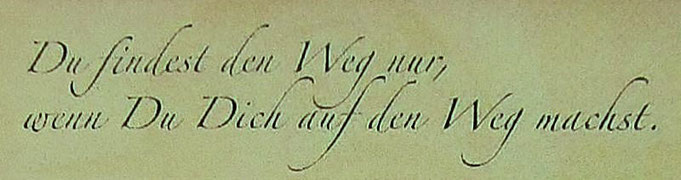 Du findest den Weg nur,
wenn Du Dich auf den Weg machst.